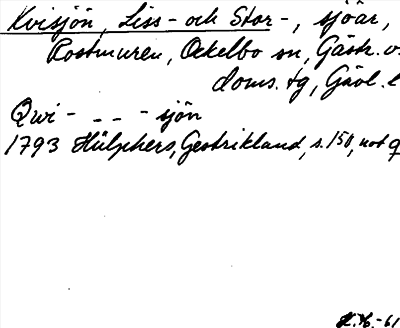 Kvisjön, Liss- och Stor-, sjöar,
Rostmuren, Ockelbo sn, Gästr. v.
doms.tg, Gävl. l
Qwi- - - - sjön
1793 Hülphers, Gestrikland, s. 150, not q
H. -61